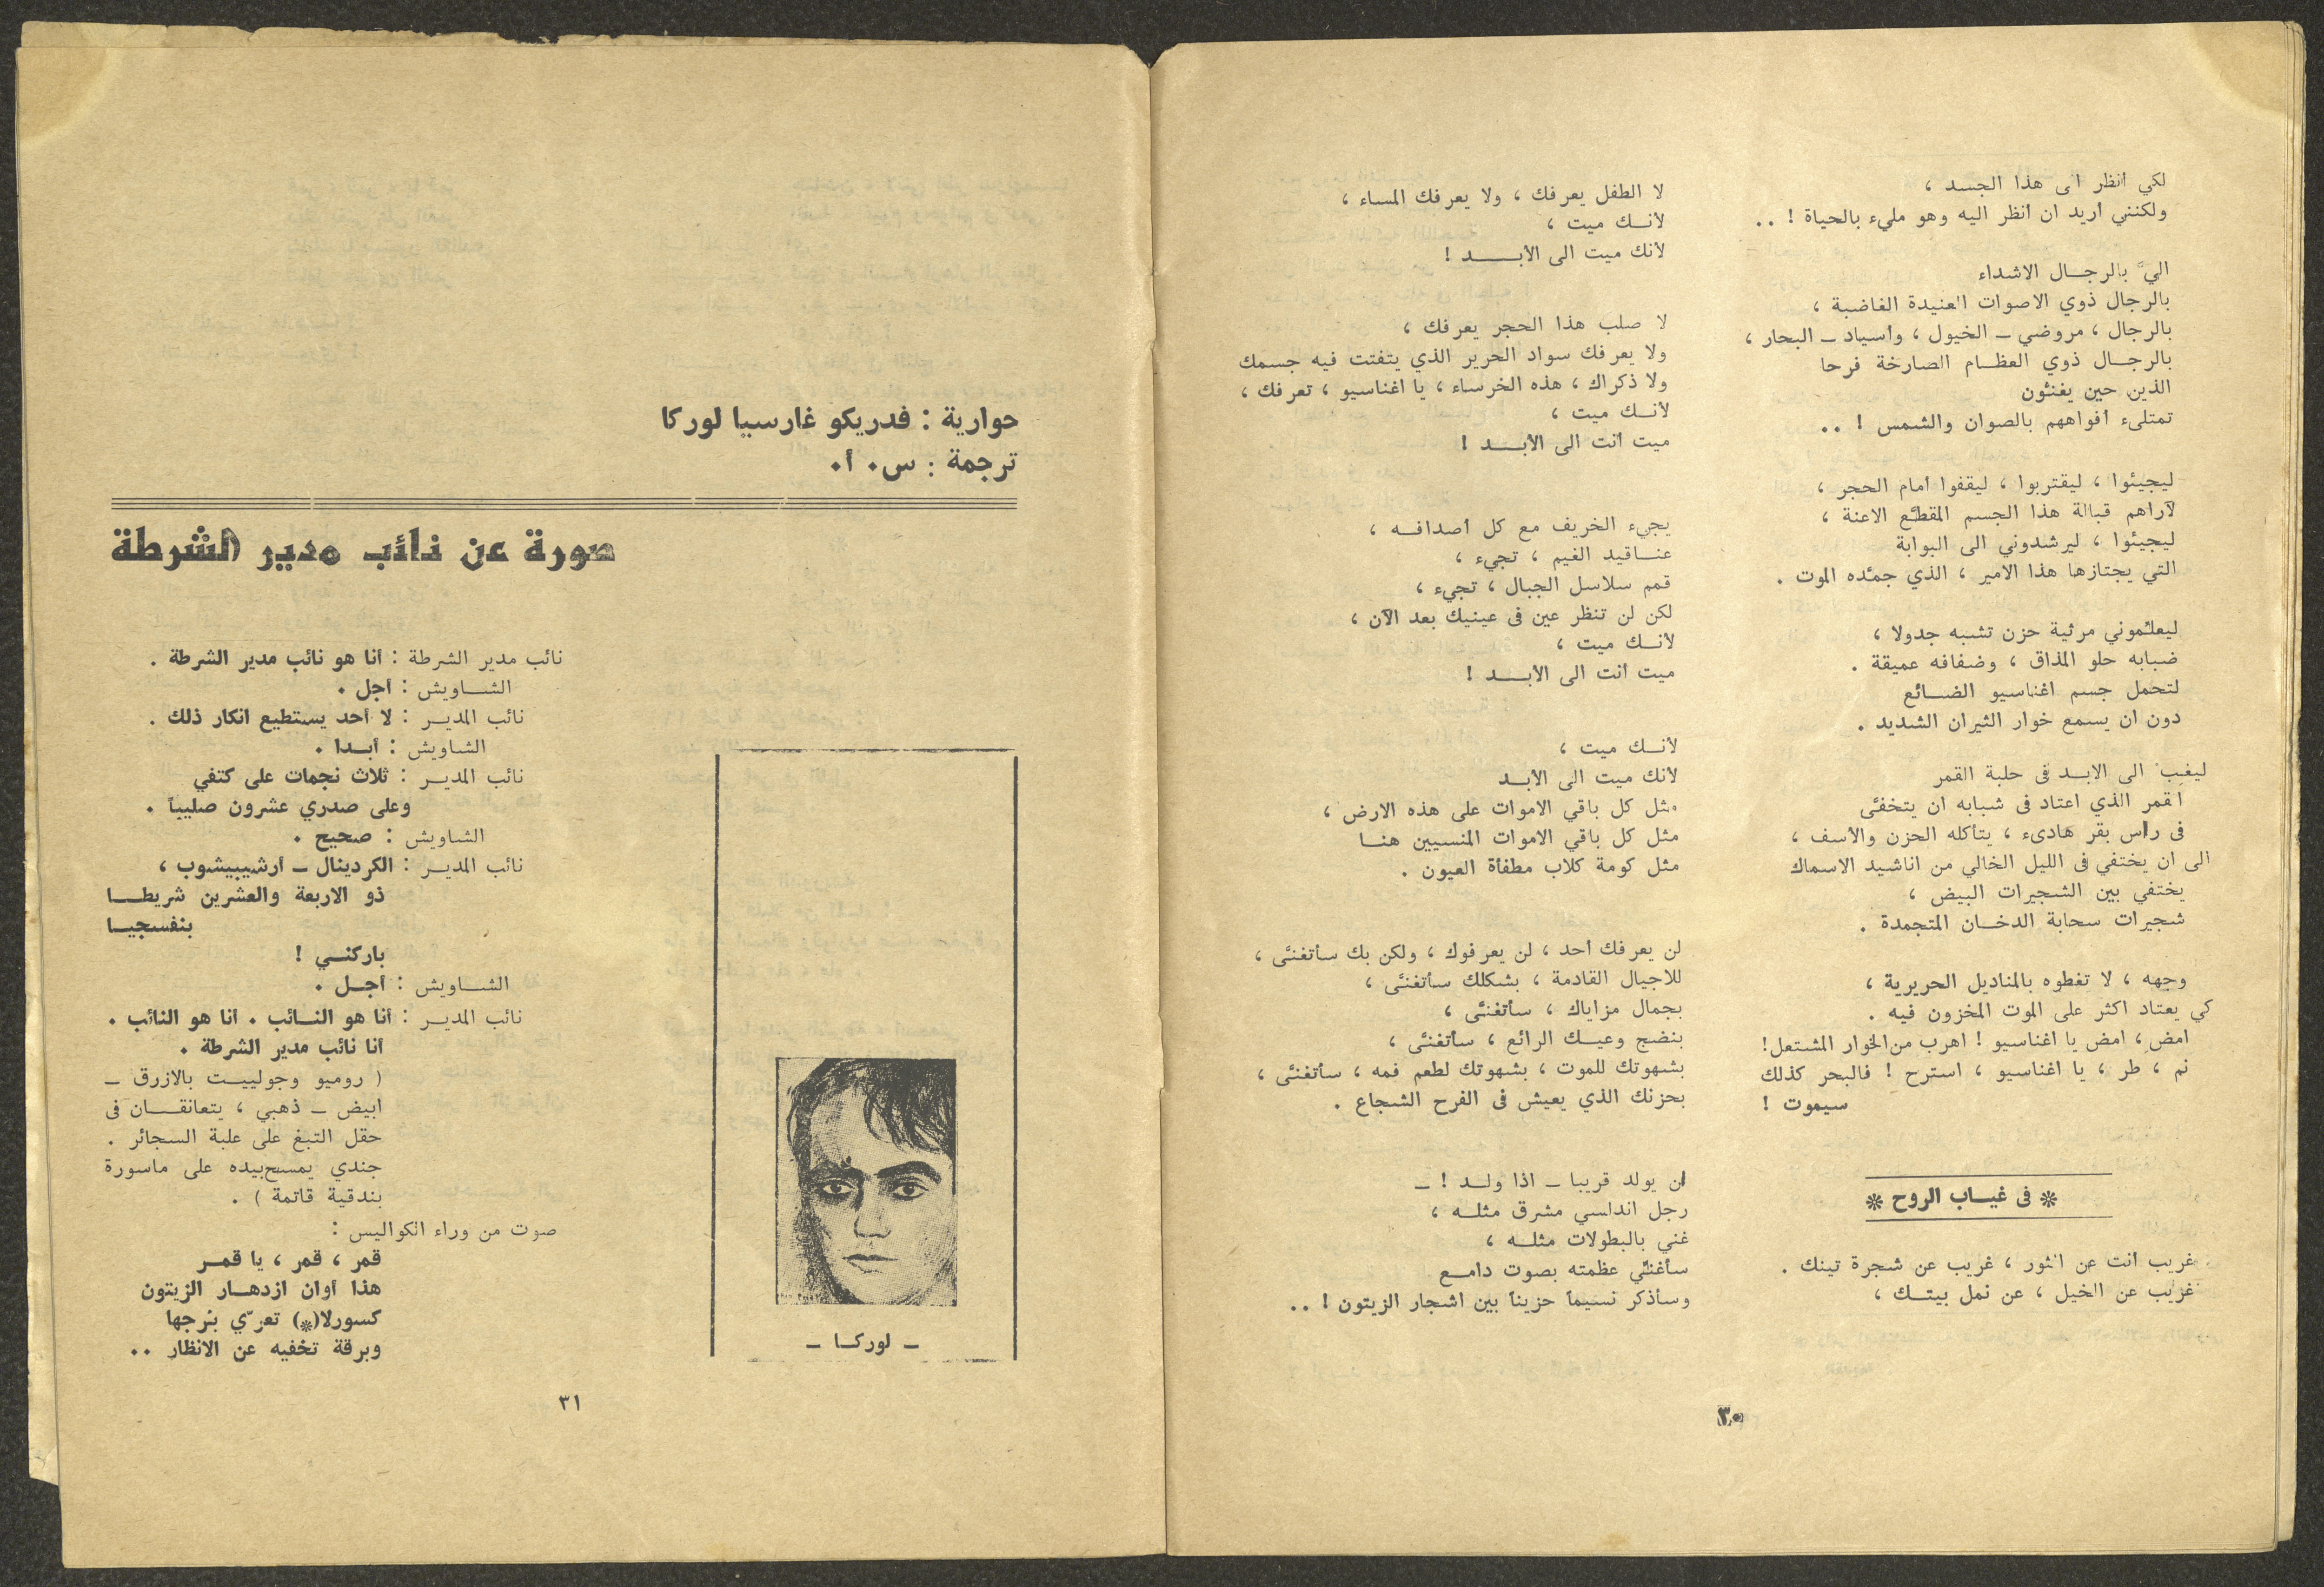 لكي انظر الى هذا الجسد ،
ولكنني اريد ان أنظر اليه وهو مليء بالحياة ! ..
اليَّ بالرجـــال الاشداء
بالرجال ذوي الاصوات العنيدة الغاضبة ،
بالرجال ، مروضي ــ الخيول ، وأسياد ــ البحار ،
بالرجـــال ذوي العظــام الصارخة فرحا
الذين حين يغنّون
تمتلىء أفواههم بالصوان والشمس ! ..
ليجيئوا ، ليقتربوا ، ليقفوا أمام الحجر ،
لآراهم قبالة هذا الجسم المقطَّع الاعنة ،
ليجيئوا ، ليرشدوني الى البوابة
التي يجتازها هذا الامير ، الذي جمَّده الموت .
ليعلّموني مرثية حزن تشبه جدولا ،
ضبابه حلو المذاق ، وضفافه عميقة .
لتحمل جسم اغناسيو الضــائع
دون ان يسمع خوار الثيران الشديد .
ليغب الى الابــد فى حلبة القمر
القمر الذي اعتاد فى شبابه ان يتخفّى
فى راس بقر هادىء ، يتأكله الحزن والأسف ،
الى ان يختفي فى الليل الخالي من اناشيد الاسماك
يختفي بين الشجيرات البيض ،
شجيرات سحابة الدخــان المتجمدة .
وجهه ، لا تغطوه بالمناديل الحريرية ،
كي يعتاد اكثر على الموت المخزون فيه .
امضِ ، امض يا اغناسيو ! اهرب من الخوار المشتعل !
نم ، طر ، يا اغناسيو ، استرح ! فالبحر كذلك
سيموت !
* فى غيــاب الروح *
غريب انت عن الثور ، غريب عن شجرة تينك .
غريب عن الخيل ، عن نمل بيتــك ،
لا الطفل يعرفك ، ولا يعرفك المساء ،
لأنــك ميت ،
لأنك ميت الى الأبــــــد !
لا صلب هذا الحجر يعرفك ،
ولا يعرفك سواد الحرير الذي يتفتت فيه جسمك
ولا ذكراك ، هذه الخرساء ، يا اغناسيو ، تعرفك ،
لأنــك ميت ،
ميت أنت الى الأبــــد !
يجيء الخريف مع كل أصدافــه ،
عنــاقيد الغيم ، تجيء ،
قمم سلاسل الجبال ، تجيء ،
لكن لن تنظر عين فى عينيك بعد الآن ،
لأنــك ميت ،
ميت أنت الى الأبــــد !
لأنــك ميت ،
لأنك ميت الى الأبــد
مثل كل باقي الاموات على هذه الارض ،
مثل كل باقي الاموات المنسيين هنــا
مثل كومة كلاب مطفأة العيون .
لن يعرفك أحد ، لن يعرفوك ، ولكن بك سأتغنّى ،
للاجيال القادمة ، بشكلك سأتغنّى ،
بجمال مزاياك ، سأتغنّى ،
بنضج وعيــك الرائع ، سأتغنّى ،
بشهوتك للموت ، بشهوتك لطعم فمه ، سأتغنّى ،
بحزنك الذي يعيش فى الفرح الشجاع .
لن يولد قريبا ــ اذا ولــد ! ــ
رجل اندلسي مشرق مثلــه ،
غني بالبطولات مثلــه ،
سأغنّي عظمته بصوت دامــع
وسأذكر نسيماً حزيناً بين اشجار الزيتون ! ..
٣٠
حوارية : فدريكو غارسيا لوركا
ترجمة : س. أ.
صورة عن نائب مدير الشرطة
ــ لوركــا ــ
نائب مدير الشرطة : أنا هو نائب مدير الشرطة .
الشــاويش : أجل .
نائب المديــر : لا أحد يستطيع انكار ذلك .
الشاويش : أبــدا .
نائب المديــر : ثلاث نجمات على كتفي
وعلى صدري عشرون صليباً .
الشاويش : صحيح .
نائب المديــر : الكردينال ــ أرشيبيشوب ،
ذو الاربعة والعشرين شريطــا
بنفسجيــا
باركنــي !
الشــاويش : أجــل .
نائب المديــر : أنا هو النــائب . أنا هو النائب .
أنا نائب مدير الشرطة .
( روميو وجولييــت بالازرق ــ
ابيض ــ ذهبي ، يتعانقــان فى
حقل التبغ على علبة السجائر .
جندي يمسح بيده على ماسورة
بندقية قاتمة ) .
صوت من وراء الكواليس :
قمر ، قمر ، يا قمــر
هذا أوان ازدهــار الزيتون
كسورلا(*) تعرّي برجها
وبرقة تخفيه عن الانظار ..
٣١